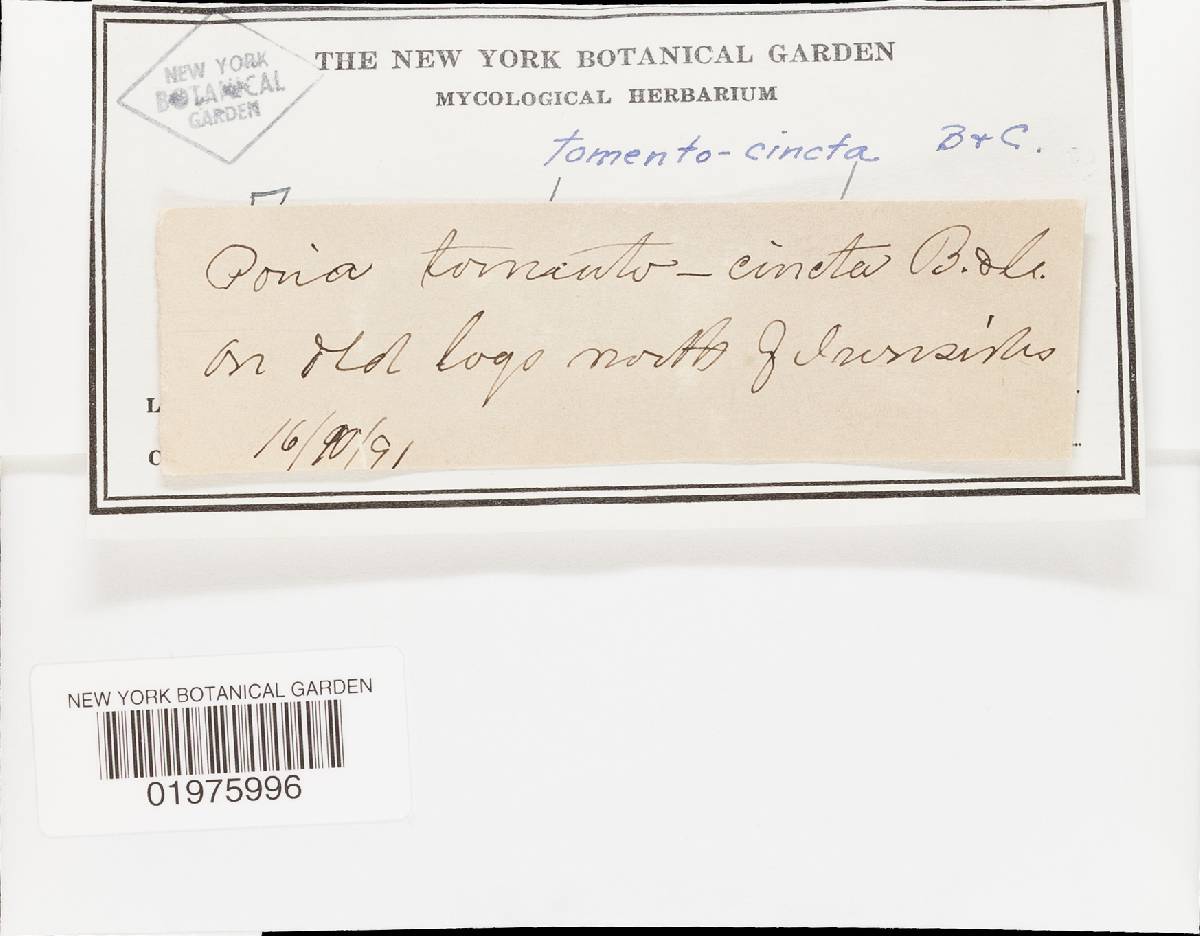 THE NEW YORK BOTANICAL GARDEN
MYCOLOGICAL HERBARIUM
NEW YORK
BOTANICAL
GARDEN
tomento-cincta B+C.
Poria tomento-cincta B.&C.
on old logs north of
16/ /91
NEW YORK BOTANICAL GARDEN
01975996